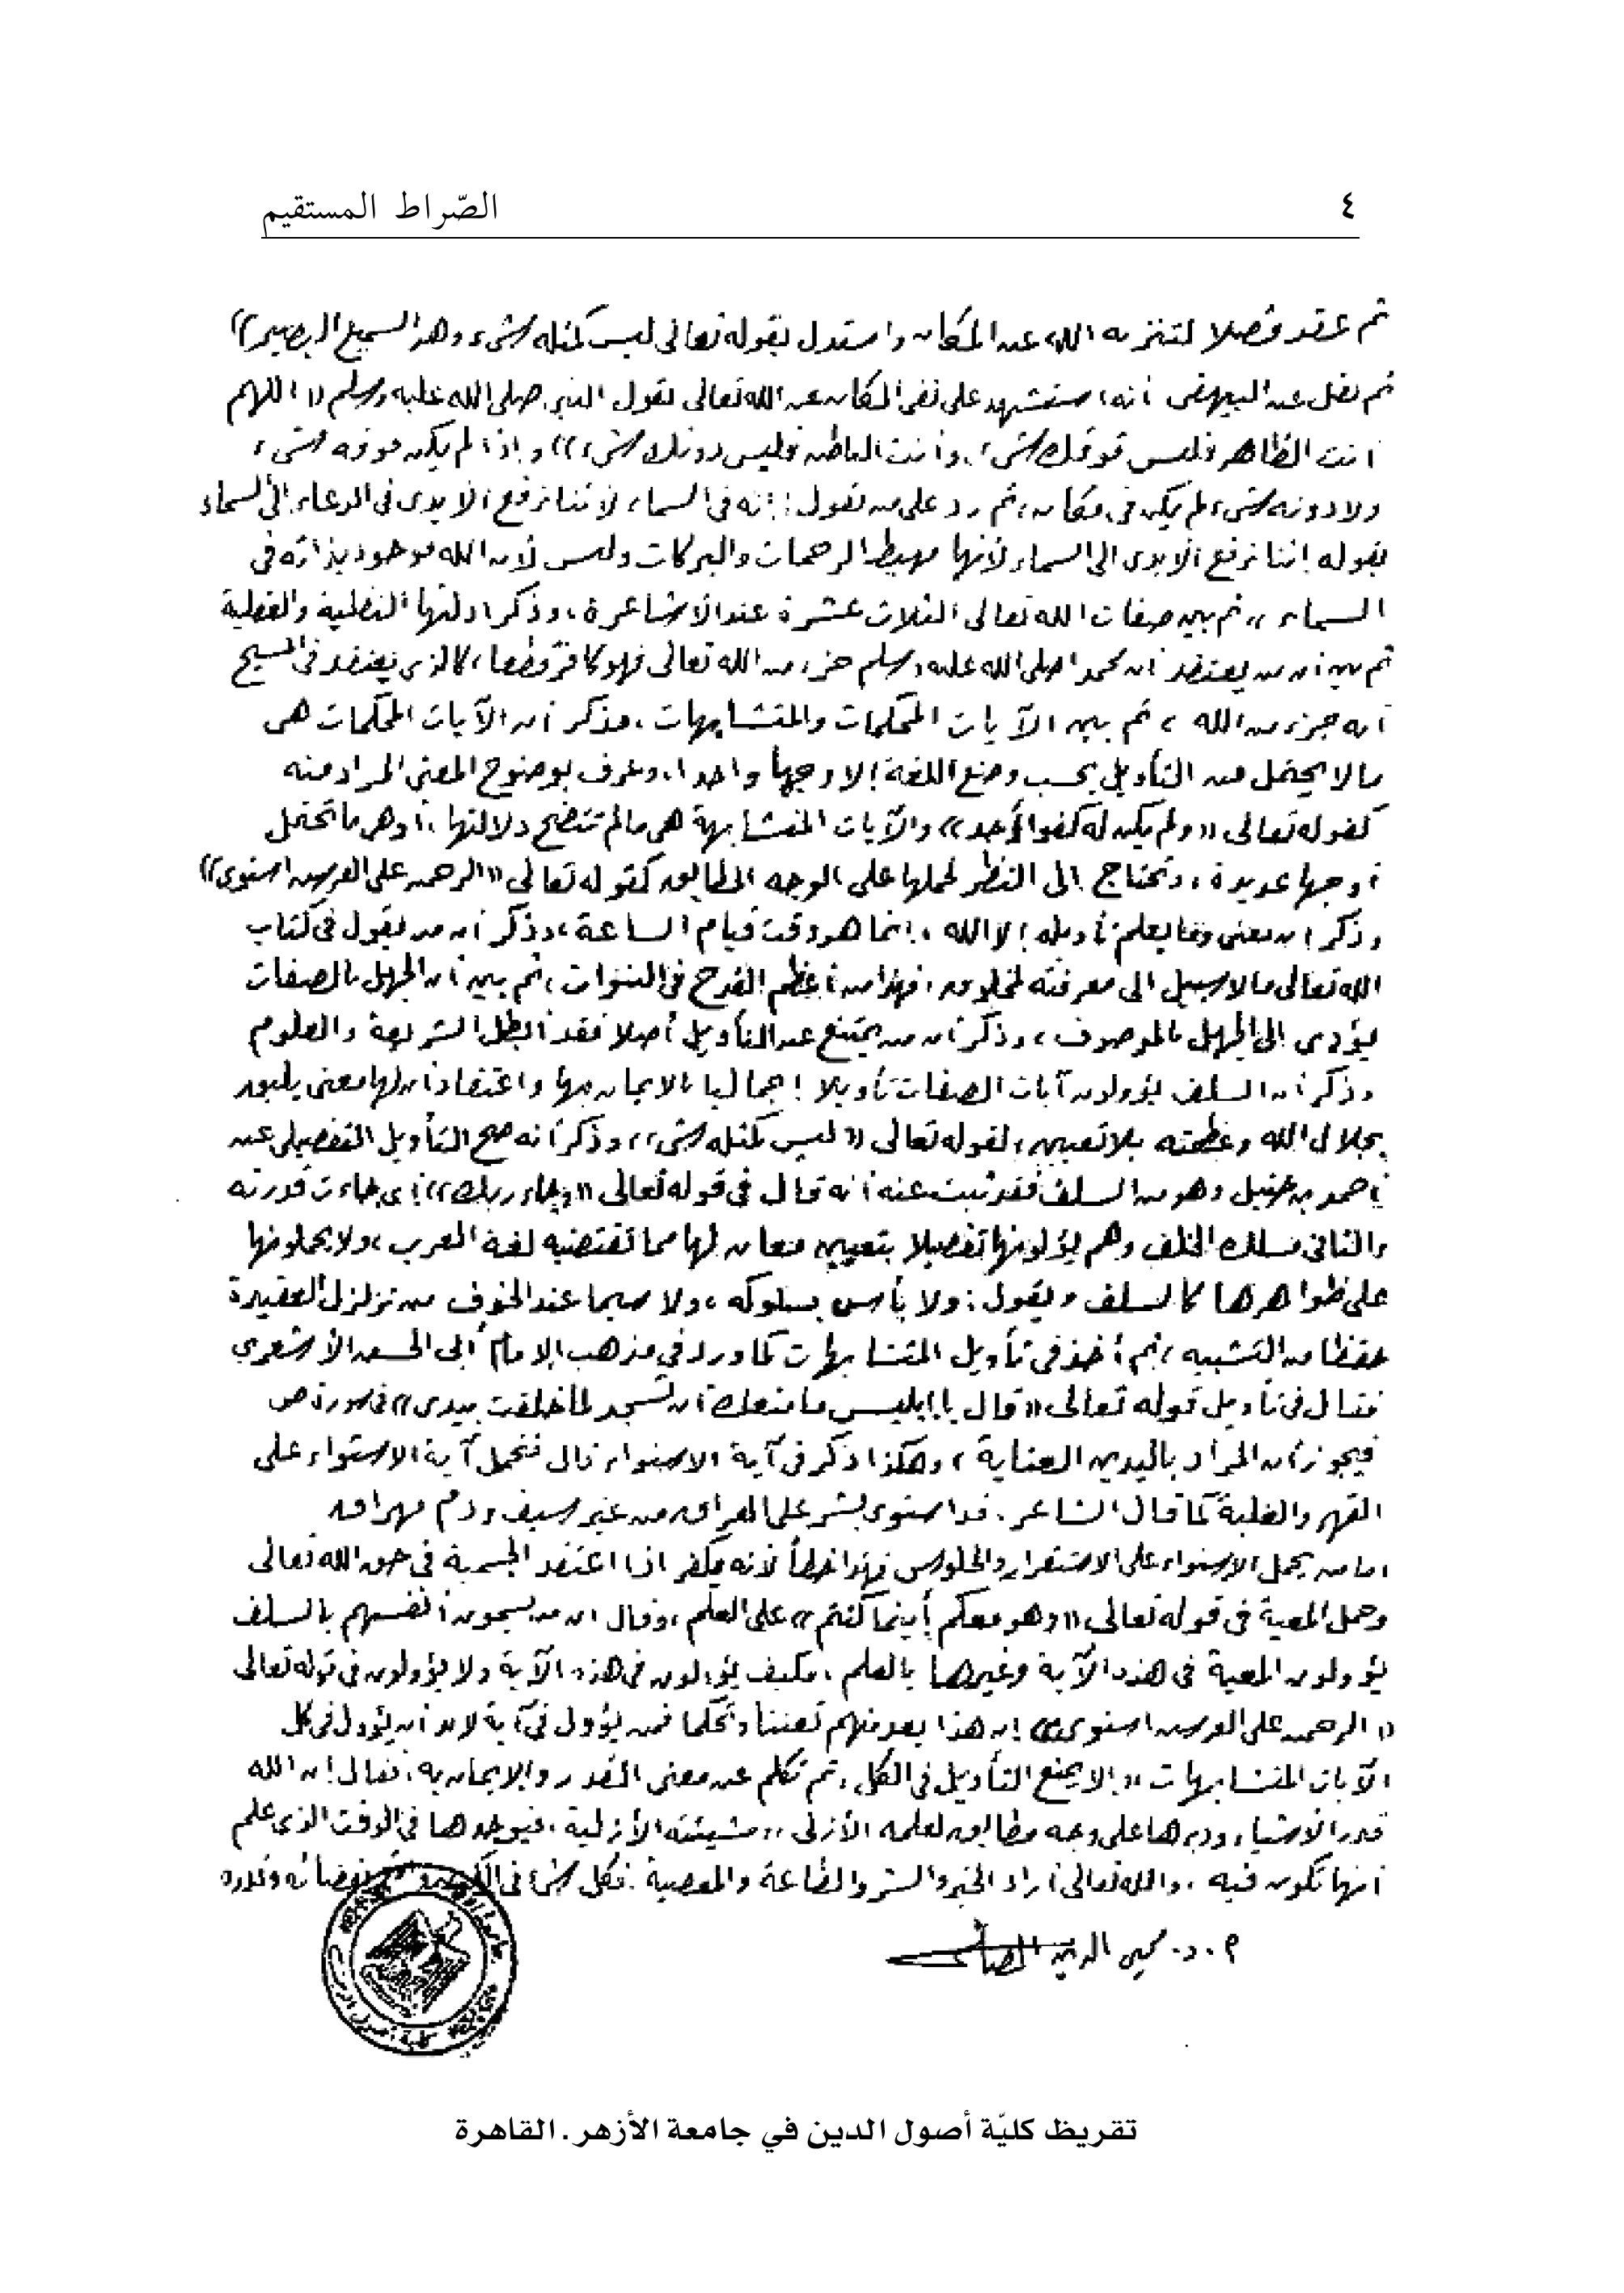 ٤
الصّراط المستقيم
ثم عقد فصلا لتنزيه الله عن المكان واستدل بقوله تعالى ليس كمثله شىء وهو السميع البصير))
ثم نقل عن البيهقى أنه استشهد على نفى المكان عن الله تعالى بقول النبى صلى الله عليه وسلم (( اللهم
أنت الظاهر فليس فوقك شىء، وأنت الباطن فليس دونك شىء)) وإذا لم يكن فوقه شىء
ولا دونه شىء لم يكن فى مكان، ثم رد على من يقول: إنه فى السماء لأننا نرفع الأيدى فى الدعاء إلى السماء
بقوله إننا نرفع الأيدى الى السماء لأنها مهبط الرحمات والبركات وليس لأن الله موجود بذاته فى
السماء،، ثم بين صفات الله تعالى الثلاث عشرة عند الأشاعرة، وذكر أدلتها النقلية والعقلية
ثم بين أن من يعتقد أن محمدا صلى الله عليه وسلم جزء من الله تعالى فهو كافر قطعا، كالذى يعتقد فى المسيح
أنه جزء من الله ، ثم بين الآيات المحكمات والمتشابهات، فذكر أن الآيات المحكمات هى
مالا يحتمل من التأويل بحسب وضع اللغة إلا وجها واحدا، وعرف بوضوح المعنى المراد منه
كقوله تعالى (( ولم يكن له كفوا أحد)) والآيات المتشابهة هى مالم تتضح دلالتها، أو هى ما تحتمل
أوجها عديدة، وتحتاج الى النظر لحملها على الوجه المطابق كقوله تعالى ((الرحمن على العرش استوى))
وذكر أن معنى وما يعلم تأويله إلا الله ، إنما هو وقت قيام الساعة، وذكر أن من يقول فى كتاب
الله تعالى مالا سبيل الى معرفته لمخلوق، فهذا من أعظم القدح فى النبوات، ثم بين أن الجهل بالصفات
يؤدى الى الجهل بالموصوف ، وذكر أن من يمتنع عن التأويل أصلا فقد أبطل الشريعة والعلوم
وذكر أن السلف يؤولون آيات الصفات تأويلا إجماليا بالايمان بها واعتقاد أن لها معنى يليق
بجلال الله وعظمته بلا تعيين، لقوله تعالى (( ليس كمثله شىء،، وذكر أنه صح التأويل التفصيلى عن
أحمد بن حنبل وهو من السلف فقد ثبت عنه أنه قال فى قوله تعالى (( وجاء ربك)) أى جاءت قدرته
والثانى مسلك الخلف وهم يؤولونها تفصيلا بتعيين معان لها مما تقتضيه لغة العرب، ولا يحملونها
على ظواهرها كالسلف ويقول: ولا بأس بسلوكه ، ولا سيما عند الخوف من تزلزل العقيدة
حفظا من التشبيه ، ثم أخذ فى تأويل المتشابهات كما ورد في مذهب الإمام أبى الحسن الأشعري
فقال فى تأويل قوله تعالى (( قال يا إبليس ما منعك أن تسجد لما خلقت بيدى)) فى سورة ص
فيجوز أن المراد باليدين العناية ، وهكذا ذكر فى آية الاستواء قال فتحمل آية الاستواء على
القهر والغلبة كما قال الشاعر. قد استوى بشر على العراق من غير سيف ودم مهراق
أما من يحمل الاستواء على الاستقرار والجلوس فهذا خطأ لأنه يكفر اذا اعتقد الجسمية فى حق الله تعالى
وحمل المعية فى قوله تعالى (( وهو معكم أينما كنتم)) على العلم، وقال إن من يسمون أنفسهم بالسلف
يؤولون المعية فى هذه الآية وغيرها بالعلم ، فكيف يؤولون فى هذه الآية ولا يؤولون فى قوله تعالى
(( الرحمن على العرش استوى)) إن هذا يعد منهم تعنتا وتحكما فمن يؤول فى آية لابد أن يؤول فى كل
الآيات المتشابهات وإلا يمنع التأويل فى الكل، ثم تكلم عن معنى القدر والإيمان به، فقال إن الله
قدر الأشياء ودبرها على وجه مطابق لعلمه الأزلى ومشيئته الأزلية، فيوجدها فى الوقت الذى علم
أنها تكون فيه ، والله تعالى أراد الخير والشر والطاعة والمعصية. فكل شىء فى بقضائه وقدره
أ.د. محيى الدين الصافى
كلية أصول الدين
تقريظ كليّة أصول الدين في جامعة الأزهر. القاهرة